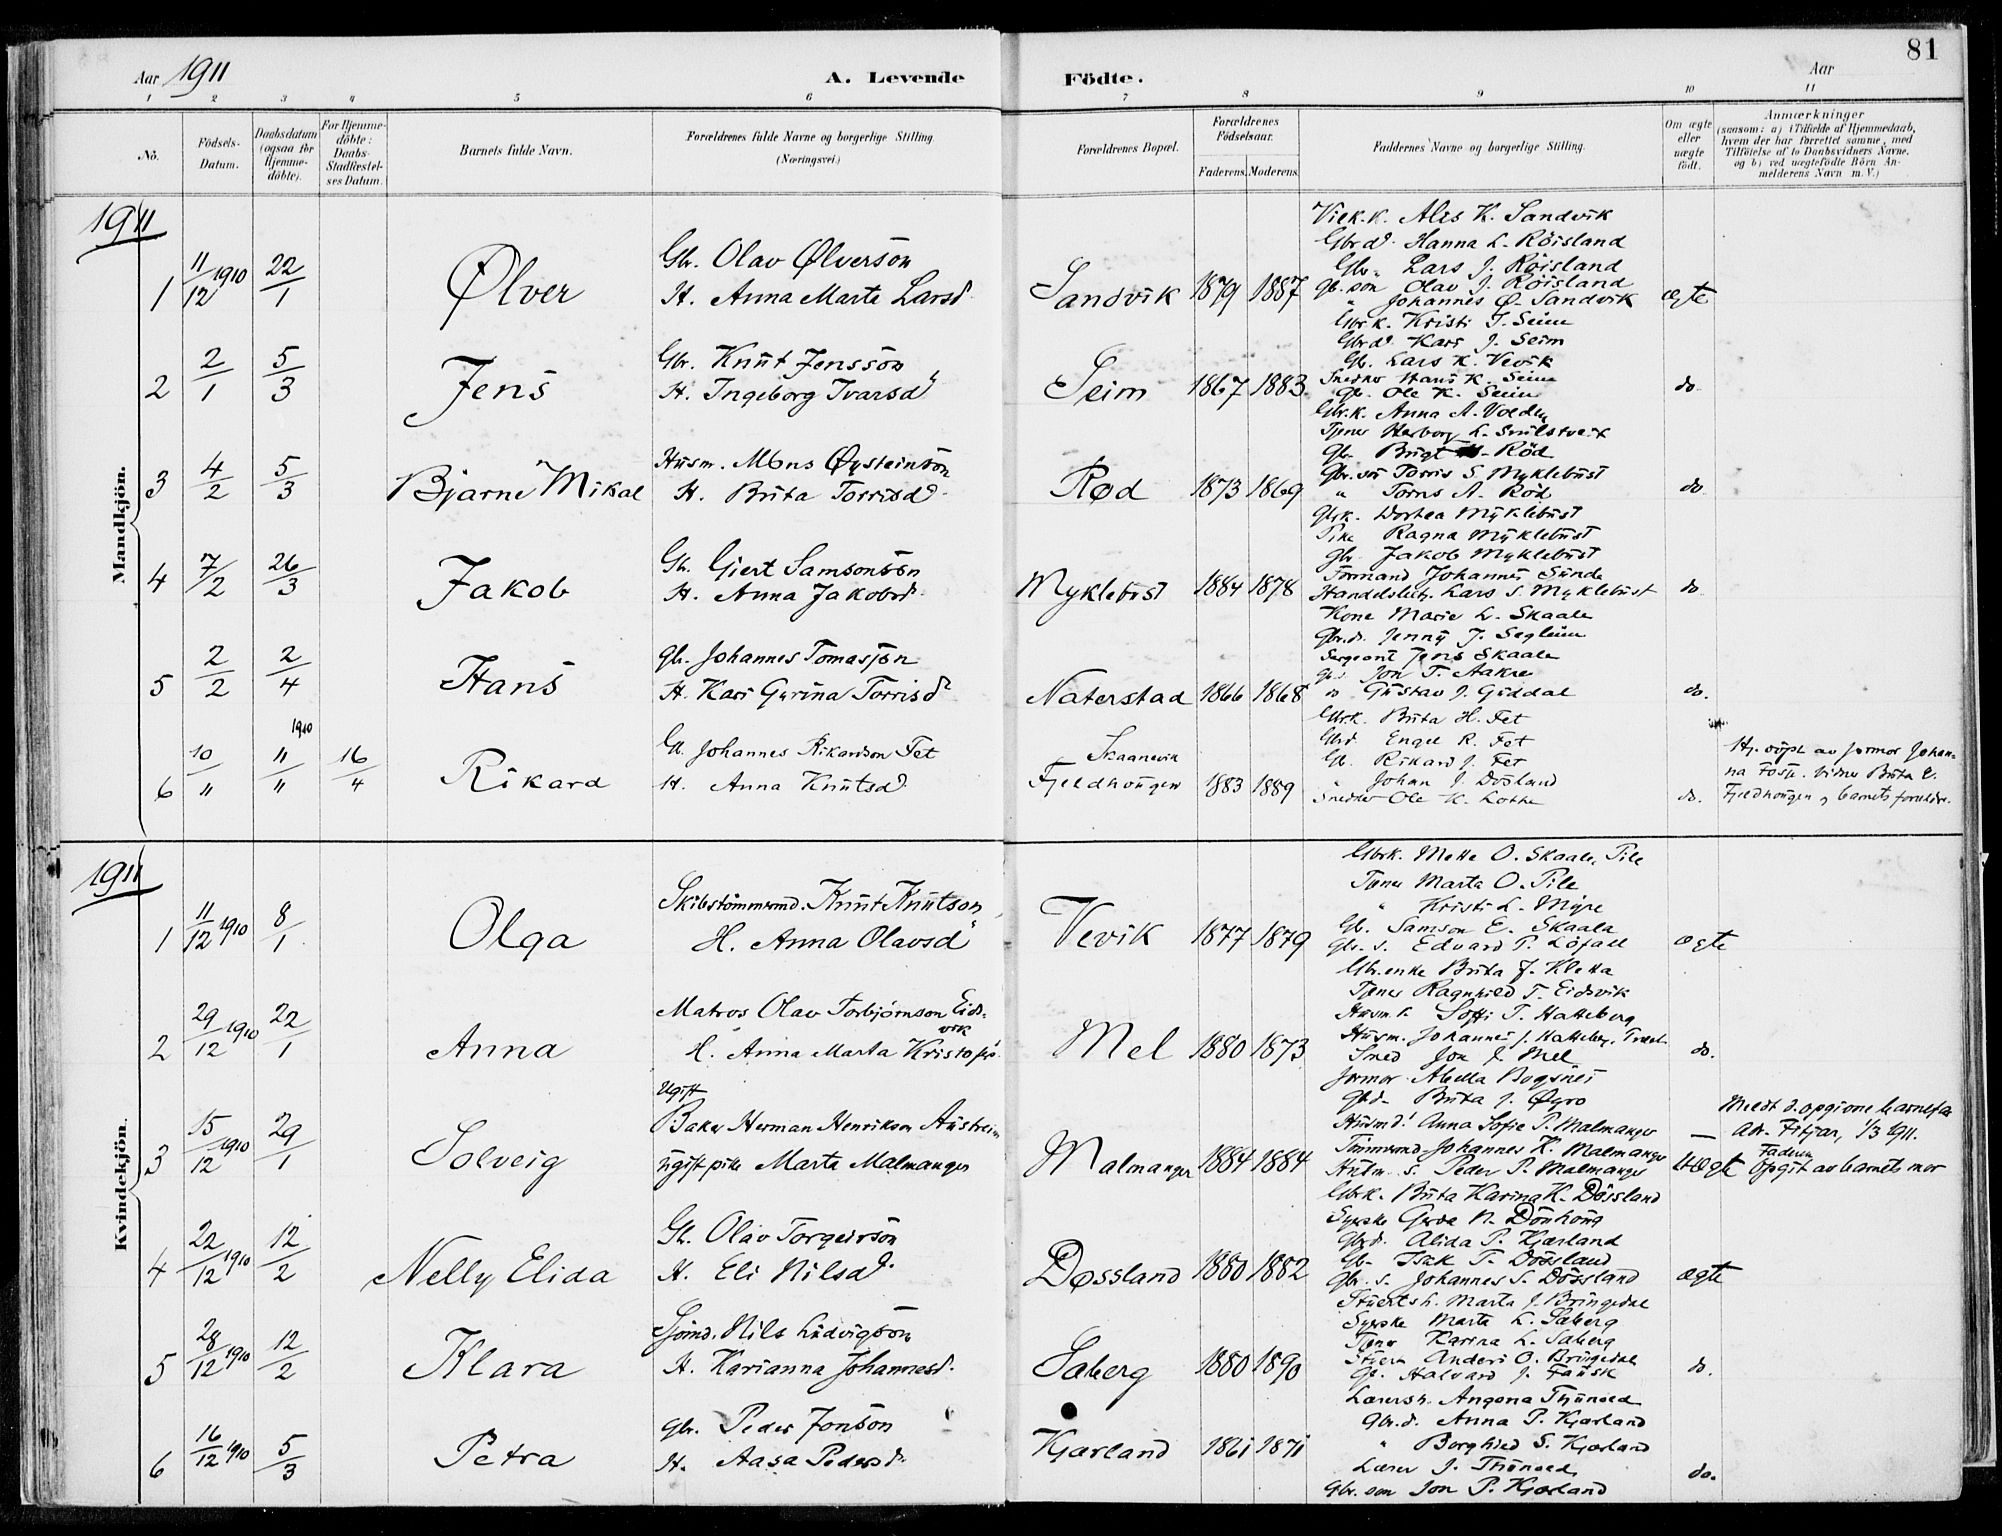 81
Aar 1911
A. Levende Födte.
Aar
1 2 3 4 5 6 7 8 9 10 11
No.
Födsels-Datum.
Daabsdatum (ogsaa for Hjemme-döbte).
For Hjemme-döbte: Daabs-Stadfæstel-ses Datum.
Barnets fulde Navn.
Forældrenes fulde Navne og borgerlige Stilling.
(Næringsvei.)
Forældrenes Bopæl.
Forældrenes Födselsaar.
Faderens. Moderens.
Faddernes Navne og borgerlige Stilling.
Om ægte eller uægte födt.
Anmærkninger
(saasom: a) i Tilfælde af Hjemmedaab, hvem der har forrettet samme, med Tilföielse af to Daabsvidners Navne, og b) ved uægtefödte Börn Anmelderens Navn m. V.)
1911
Mandkjön.
1 11/12 1910 22/1 Ølver
Gbr. Olav Ølverson
H. Anna Marta Larsd.
Sandvik 1879 1887
Alis K. Sandvik
Gbrd. Hanna L. Röisland
Gbr. Lars J. Röisland
Gb. son Olav J. Röisland
" Johannes Ø. Sandvik
ægte
2 2/1 5/3 Jens
Gbr. Knut Jensson
H. Ingeborg Ivarsd
Seim 1867 1883
Gbr.k. Kristi J. Seim
Gbrd. Kari J. Seim
Gb. Lars K. Vevik
Snedker Hans K. Seim
Gb. Ole K. Seim
do
3 4/2 5/3 Bjarne Mikal
Husm. Mons Øysteinson
H. Brita Torrisd.
Rød 1873 1869
Gbr.k. Anna A. Volden
Tjener Herborg L.
Gbr. Brigt Röd
Gbr. son Torris S. Myklebust
" Torris A. Röd
do
4 7/2 26/3 Jakob
Gb. Giert Samsonson
H. Anna Jakobsd.
Myklebust 1884 1878
Gbrk. Dortea Myklebust
Pike Ragna Myklebust
Gbr. Jakob Myklebust
Formand Johannes Sunde
Handelsbetj. Lars S. Myklebust
do
5 2/2 2/4 Hans
Gb. Johannes Tomasson
H. Kari Gurina Torrisd.
Naterstad 1866 1868
Kone Marie L. Skaala
Gbr.d. Jenny J. Segleim
Sergeant Jens Skaala
Jon T. Aakre
do Gustav J. Guddal
do.
6 10/11 11/11 1910 16/4 Rikard
Gb. Johannes Rikardson Fet
H. Anna Knutsd.
Skaanevik
Fjeldhougen 1883 1889
Gbr.k. Brita H. Fet
Gbrd. Engel R. Fet
Gb. Rikard J. Fet
" Johan J. Døsland
Snedker Ole K. Lothe
do.
Hj. döpt av formor Johanna Vidner Brita E. Fjeldhougen og barnets foreldre.
1911
Kvindekjön.
1 11/12 1910 8/1 Olga
Skibstömmermd. Knut Knutson
H. Anna Olavsd
Vevik 1877 1879
Gbrk. Mette O. Skaala, Pile
Tjener Marta O. Pile
" Kristi L. Myre
Gb. Samson E. Skaala
Gbr. s. Edvard P. Löfall
ægte
2 29/12 1910 22/1 Anna
Matros Olav Torbjørnson Eidsvik
H. Anna Marta
Mel 1880 1873
Gbr.enke Brita J. Kletta
Tjener Ragnhild T. Eidsvik
Husm.k. Soffi T. Hatteberg
Husm. Johannes J. Hatteberg,
Sned Jon J. Mel
do.
3 15/12 1910 29/1 Solveig
Ugift
Baker Herman Henrikson Austreim
ugift pike Marta Malmanger
Malmanger 1884 1884
formor Abella Bogsnes
Gbd. Brita J. Øyro
Husmd. Anna Sofie P. Malmanger
Tömmermd. Johannes K. Malmanger
Husm. s. Peder P. Malmanger
Uægte
Meldt d. opgivne barnefar
adr. Fitjar, 1/3 1911.
Faderen
Opgit av barnets mor
4 22/12 1910 12/2 Nelly Elida
Gb. Olav Torgeirson
H. Eli Nilsd.
Døssland 1880 1882
Gbrk. Brita Karina K. Dössland
Syerske Gerda N. Dönhoug
Gbrd. Alida P. Kjærland
Gb. Isak T. Dössland
Gbr. s. Johannes S. Dössland
ægte
5 28/12 1910 12/2 Klara
Sjömd. Nils Ludvigson
H. Karianna Johannesd.
Saberg 1880 1890
Marta J. Bringedal
Syerske Marta L. Saberg
Tjener Karina L. Saberg
Anders O. Bringedal
Gb. Halvard J. Fausk
do.
6 16/12 1910 5/3 Petra
Gbr. Peder Jonson
H. Aasa Pedersd.
Kjærland 1861 1871
Lærersk. Angona Thunoed
Gbr.d. Anna P. Kjærland
" Borghild S. Kjærland
Lærer J. Thunoed
Gbr. son Jon P. Kjærland
do.